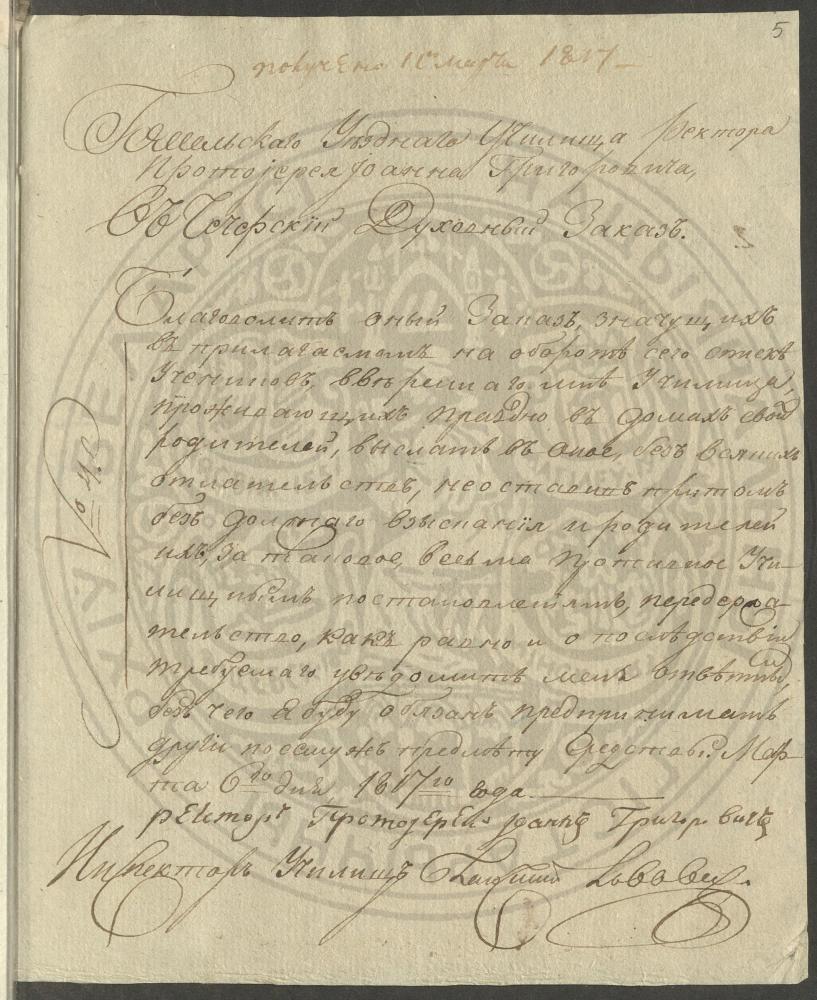 5
получено 11 марта 1817
Гомельскаго Уѣзднаго Училища Ректора
Протоіерея Іоанна Григоровича,
Въ Чечерскій Духовный Заказъ.
Благоволитъ оный Заказъ, значущихъ
въ прилагаемомъ на оборотѣ сего спискѣ
Учениковъ, ввѣреннаго мнѣ Училища,
проживающихъ праздно въ домахъ свои
родителей, выслать въ оное, безъ всякихъ
отлагательствъ, не оставивъ притомъ
безъ должнаго взысканія и родителей
ихъ, за таковое, весьма противное Учи-
лищнымъ постановленіямъ, передержа-
тельство, какъ равно и о послѣдствіи
требуемаго увѣдомить меня отвѣтомъ,
безъ чего я буду обязанъ предпринимать
другіе по сему предмѣту средства. Мар-
та 6го дня 1817го года
Ректоръ Протоіерей Іоаннъ Григоровичъ
Инспекторъ Училищъ
№ 4.